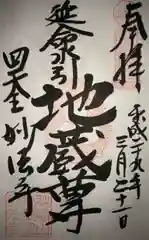 奉拝
平成二十九年
三月二十一日
延命水引
地蔵尊
妙法寺